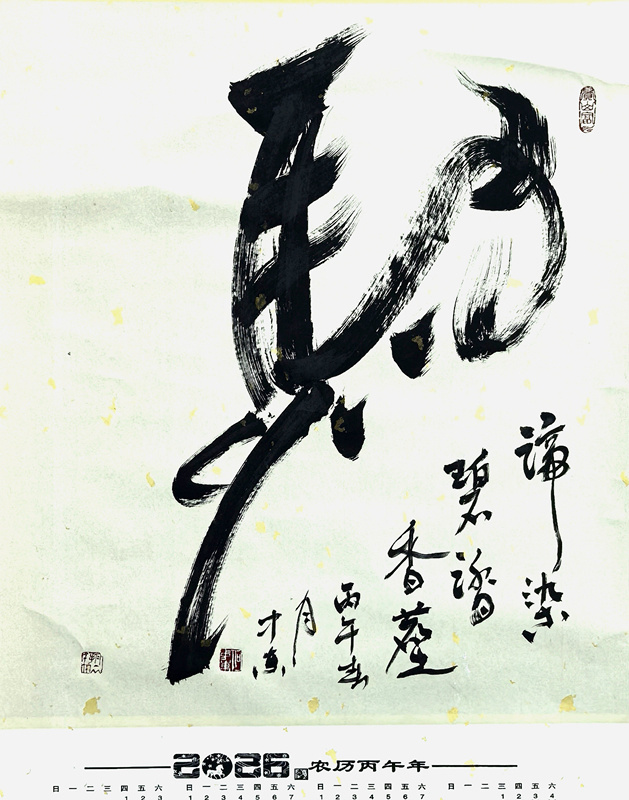 馬
蹄染
碧踏
香塵
丙午春
月
2026 农历丙午年
日 一 二 三 四 五 六 日 一 二 三 四 五 六 日 一 二 三 四 五 六 日 一 二 三 四 五 六
1 2 3 1 2 3 4 5 6 7 1 2 3 4 5 6 7 1 2 3 4